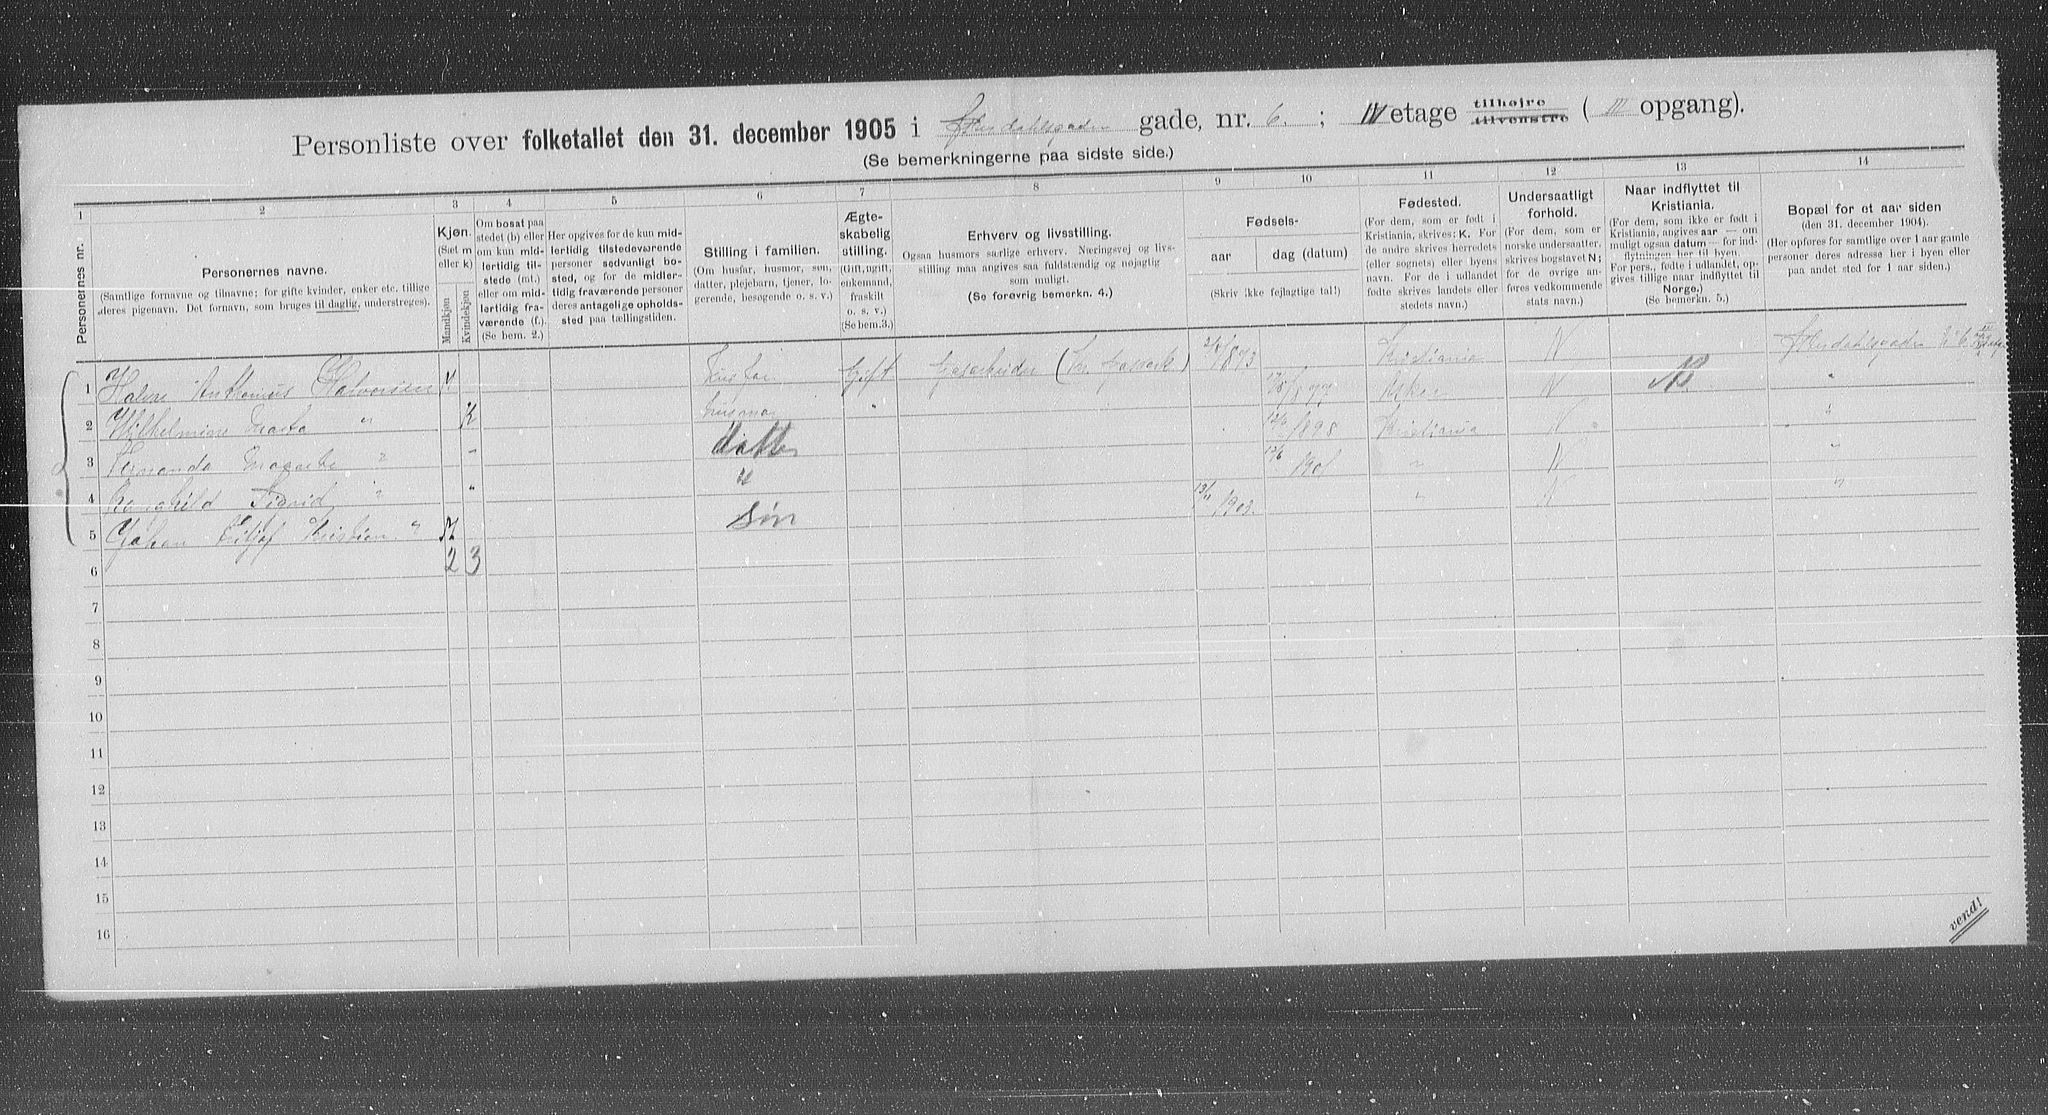 Personliste over folketallet den 31. december 1905 i gade, nr. 6. ; IV etage tilhøjre tilvenstre ( III opgang).
(Se bemerkningerne paa sidste side.)
1 2 3 4 5 6 7 8 9 10 11 12 13 14
Personernes nr.
Personernes navne.
(Samtlige fornavne og tilnavne; for gifte kvinder, enker etc. tillige
deres pigenavn. Det fornavn, som bruges til daglig, understreges).
Kjøn.
(Sæt m
eller k)
Mandkjøn
Kvindekjøn
Om bosat paa
stedet (b) eller
om kun mid-
lertidig til-
stede (mt.)
eller om mid-
lertidig fra-
værende (f.).
(Se bem. 2.)
Her opgives for de kun mid-
lertidig tilstedeværende
personer sedvanligt bo-
sted, og for de midler-
tidig fraværende personer
deres antagelige opholds-
sted paa tællingstiden.
Stilling i familien.
(Om husfar, husmor, søn,
datter, plejebarn, tjener, lo-
gerende, besøgende o. s. v.)
Ægte-
skabelig
stilling.
(Gift, ugift,
enkemand,
fraskilt
o. s. v.)
(Se bem.3.)
Erhverv og livsstilling.
Ogsaa husmors særlige erhverv. Næringsvej og livs-
stilling maa angives saa fuldstændig og nøjagtig
som muligt.
(Se forøvrig bemerkn. 4.)
Fødsels-
aar
dag (datum)
(Skriv ikke fejlagtige tal!)
Fødested.
(For dem, som er født i
Kristiania, skrives: K. For
de andre skrives herredets
(eller sognets) eller byens
navn. For de i udlandet
fødte skrives landets eller
stedets navn.)
Undersaatligt
forhold.
(For dem, som er
norske undersaatter,
skrives bogstavet N;
for de øvrige an-
føres vedkommende
stats navn.)
Naar indflyttet til
Kristiania.
(For dem, som ikke er født i
Kristiania, angives aar — om
muligt ogsaa datum — for ind-
flytningen her til byen.
For pers., fødte i udlandet, op-
gives tillige naar indflyttet til
Norge.)
(Se bemerkn. 5.)
Bopæl for et aar siden
(den 31. december 1904).
(Her opføres for samtlige over 1 aar gamle
personer deres adresse her i byen eller
paa andet sted for 1 aar siden.)
1 Halvor Anthonius Halvorsen M Husfar Gift Gasarbeider 1873 Kristiania N
2 Wilhelmine " K husmor " Asker N "
3 Margrethe " " datter 1898 Kristiania N "
4 Ragnhild Sigrid " " " 13/6 1901 " N "
5 Johan Kristian " M søn 13/11 1903. " N "
6 2 3
7
8
9
10
11
12
13
14
15
16
vend!